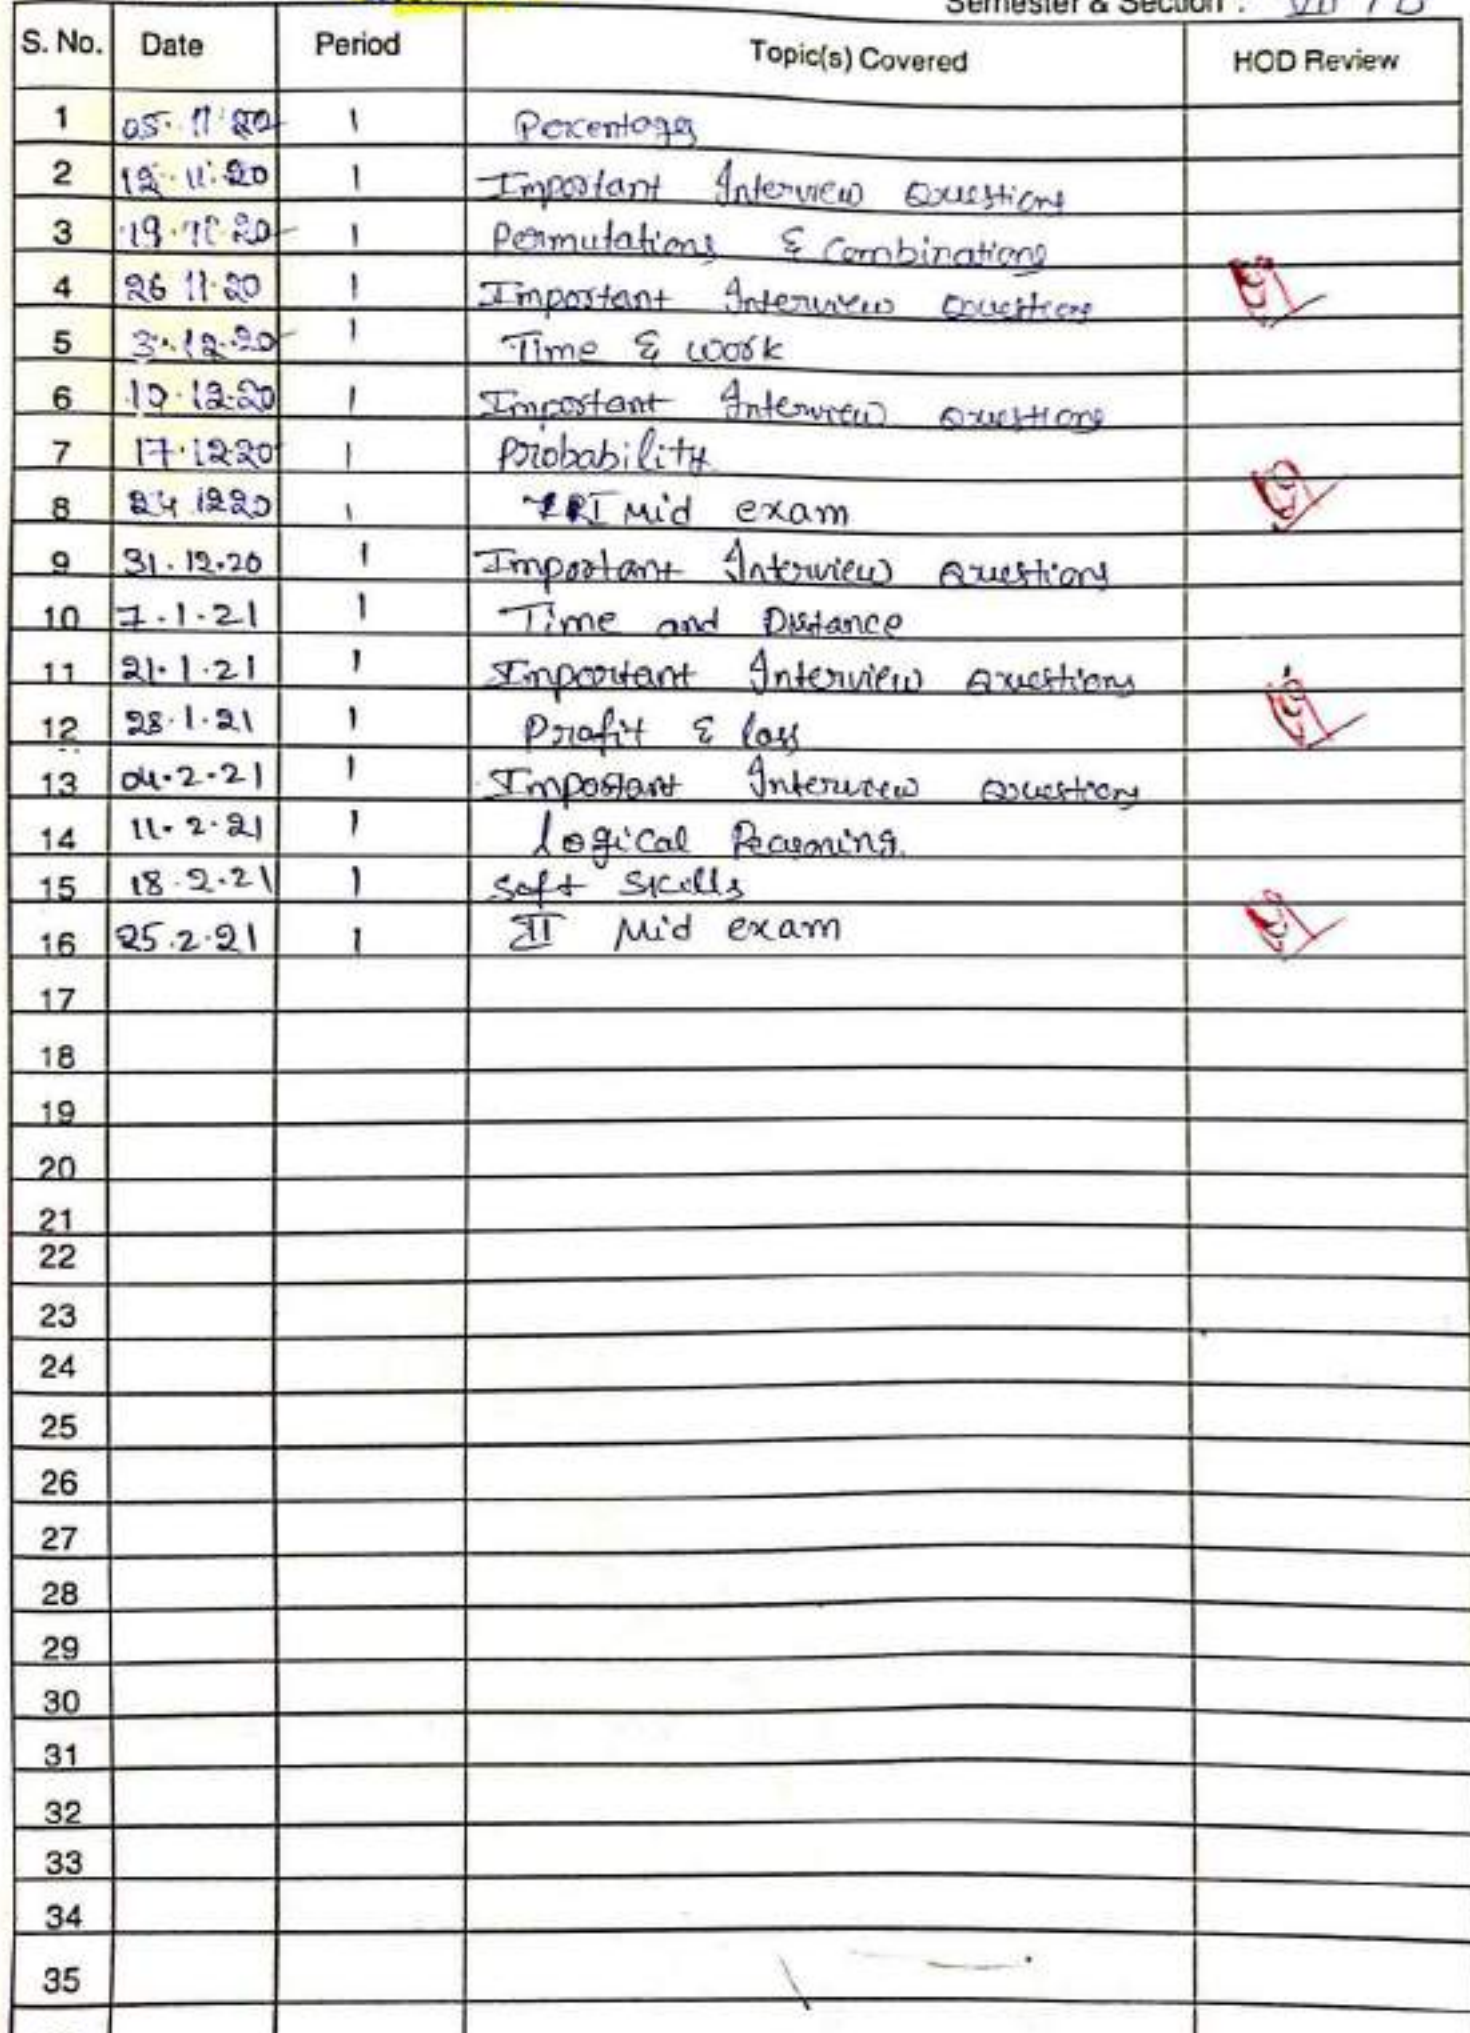 Semester & Section : VII / B
S. No. Date Period Topic(s) Covered HOD Review
1 05.11.20 1 Percentages
2 12.11.20 1 Important Interview Questions
3 19.11.20 1 Permutations & Combinations
4 26 11.20 1 Important Interview Questions
5 3.12.20 1 Time & work
6 10.12.20 1 Important Interview Questions
7 17.12.20 1 Probability
8 24 12 20 1 I Mid exam
9 31.12.20 1 Important Interview Questions
10 7.1.21 1 Time and Distance
11 21.1.21 1 Important Interview Questions
12 28.1.21 1 Profit & loss
13 04.2.21 1 Important Interview Questions
14 11.2.21 1 Logical Reasoning.
15 18.2.21 1 Soft Skills
16 25.2.21 1 II Mid exam
17
18
19
20
21
22
23
24
25
26
27
28
29
30
31
32
33
34
35